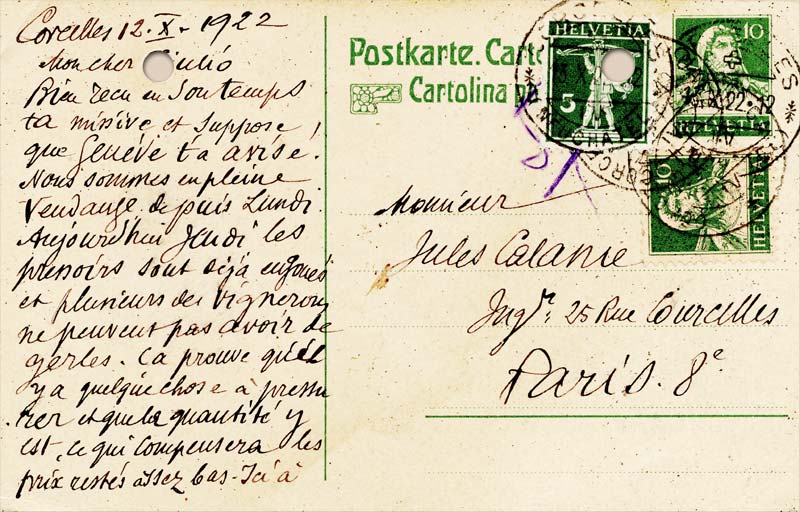 Corcelles 12.X.1922
Mon cher Giulió
Bien reçu en son temps
ta missive et suppose
que Genève t'a avisé!
Nous sommes en pleine
Vendange depuis Lundi.
Aujourd'hui Jeudi les
pressoirs sont déjà
et plusieurs des vignerons
ne peuvent pas avoir de
gerles. Ça prouve qu'il
y a quelque chose à pressu
rer et que la quantité y
est, ce qui compensera les
prix restés assez bas - Ici à
Postkarte. Carte
Cartolina
HELVETIA
5
10
HELVETIA
10
HELVETIA
Monsieur
Jules Calame
Ingr. 25 Rue Courcelles
Paris. 8e